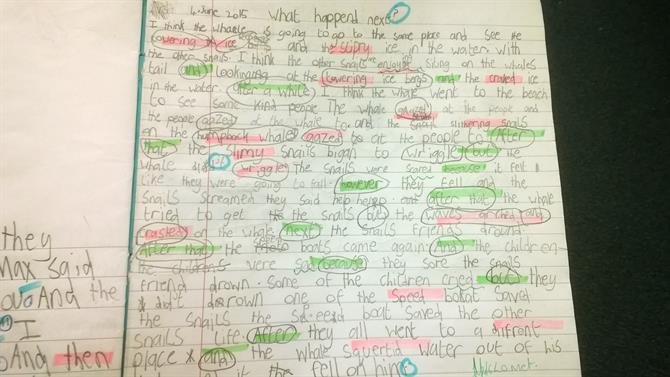 4 June 2015 What happend next?
I think the whale is going to go to the same place and see the
towering ice and the slipry ice in the water with
the other snails. I think the other snails enjoying siting on the whales
tail and looking at the towering ice bergs and the ice
in the water. after a while I think the whale went to the beach
to see some kind people The whale gazed at the people and
the people gazed at the whale to and the slithering snails
on the humpback whale gazed at the people to. After
that the slimy snails bigan to wriggle but the
whale wriggle The snails were scared because it felt
like they were going to fall however they fell and the
snails screamed they said help help after that the whale
tried to get the snails but the waves arched and
crasted on the whale next the snails friends
After that the speed boats came again And the children
the children were sad because they sore the snails
friend drown. Some of the children cried but they
didt drown one of the speed boat saved
the snails the speed boat saved the other
snails life. After they all went to a difrent
place and the whale squertid water out of his
fell on him
they
Max said
And the
I
And then